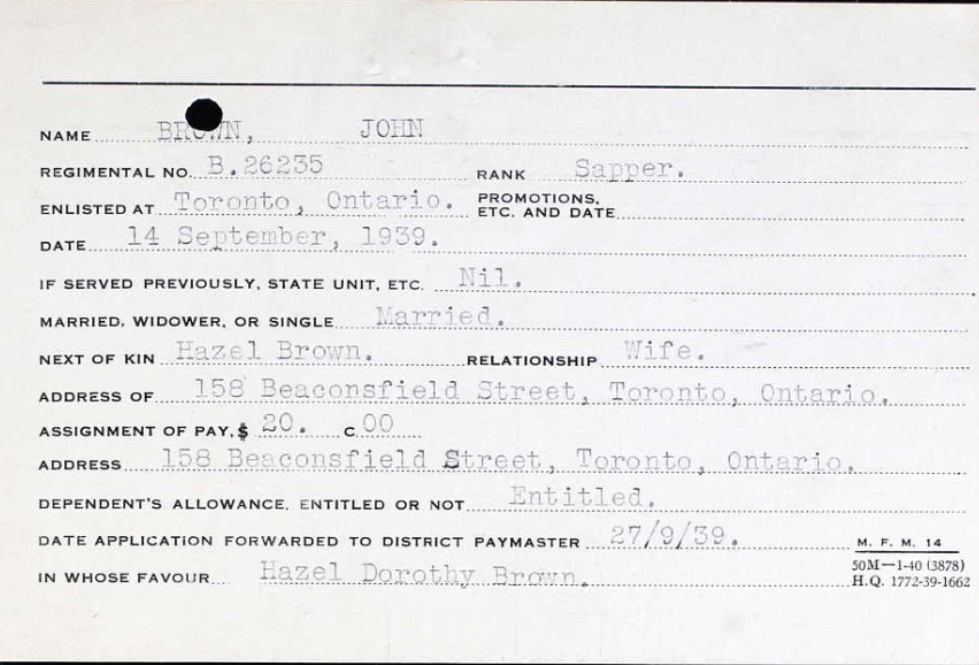 NAME BROWN, JOHN
REGIMENTAL NO. B.26235 RANK Sapper.
ENLISTED AT Toronto, Ontario. PROMOTIONS, ETC. AND DATE
DATE 14 September, 1939.
IF SERVED PREVIOUSLY, STATE UNIT, ETC. Nil.
MARRIED, WIDOWER, OR SINGLE Married.
NEXT OF KIN Hazel Brown. RELATIONSHIP Wife.
ADDRESS OF 158 Beaconsfield Street, Toronto, Ontario.
ASSIGNMENT OF PAY, $ 20. C 00
ADDRESS 158 Beaconsfield Street, Toronto, Ontario.
DEPENDENT'S ALLOWANCE, ENTITLED OR NOT Entitled.
DATE APPLICATION FORWARDED TO DISTRICT PAYMASTER 27/9/39.
IN WHOSE FAVOUR Hazel Dorothy Brown.
M. F. M. 14
50M—1-40 (3878)
H.Q. 1772-39-1662